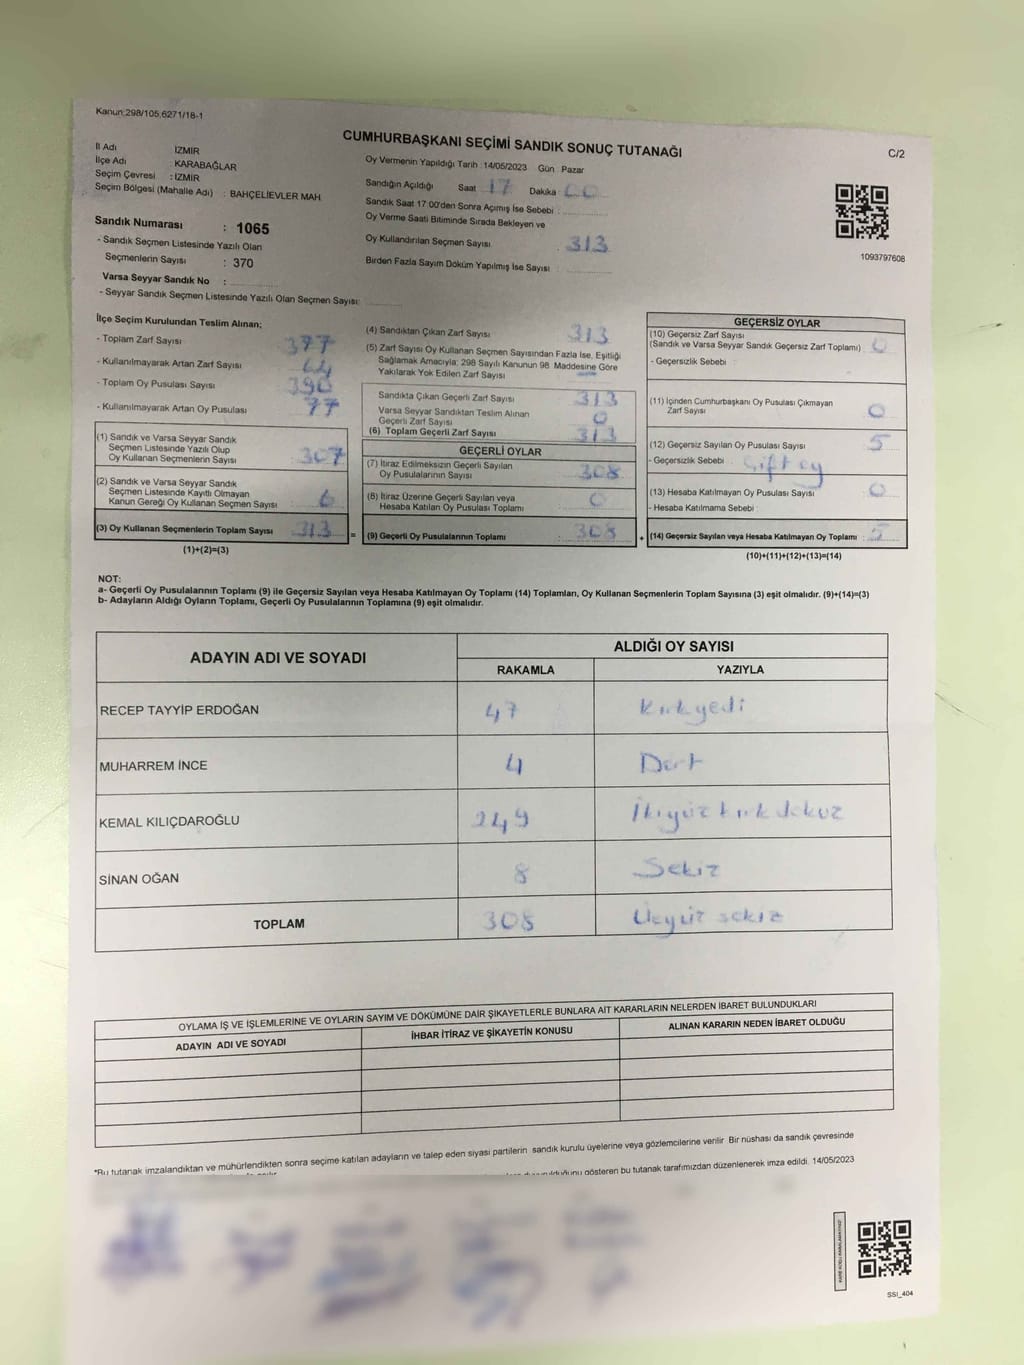 Kanun:298/105,6271/18-1
CUMHURBAŞKANI SEÇİMİ SANDIK SONUÇ TUTANAĞI
C/2
İl Adı : İZMİR
İlçe Adı : KARABAĞLAR
Seçim Çevresi : İZMİR
Seçim Bölgesi (Mahalle Adı) : BAHÇELİEVLER MAH.
Oy Vermenin Yapıldığı Tarih : 14/05/2023 Gün : Pazar
Sandığın Açıldığı Saat : 17 Dakika : 00
Sandık Saat 17:00'den Sonra Açılmış İse Sebebi :
Oy Verme Saati Bitiminde Sırada Bekleyen ve
Oy Kullandırılan Seçmen Sayısı : 313
Birden Fazla Sayım Döküm Yapılmış İse Sayısı :
1093797608
Sandık Numarası : 1065
- Sandık Seçmen Listesinde Yazılı Olan
Seçmenlerin Sayısı : 370
Varsa Seyyar Sandık No :
- Seyyar Sandık Seçmen Listesinde Yazılı Olan Seçmen Sayısı:
İlçe Seçim Kurulundan Teslim Alınan;
- Toplam Zarf Sayısı : 377
- Kullanılmayarak Artan Zarf Sayısı : 64
- Toplam Oy Pusulası Sayısı : 390
- Kullanılmayarak Artan Oy Pusulası : 77
(1) Sandık ve Varsa Seyyar Sandık
Seçmen Listesinde Yazılı Olup
Oy Kullanan Seçmenlerin Sayısı : 307
(2) Sandık ve Varsa Seyyar Sandık
Seçmen Listesinde Kayıtlı Olmayan
Kanun Gereği Oy Kullanan Seçmen Sayısı : 6
(3) Oy Kullanan Seçmenlerin Toplam Sayısı : 313
(1)+(2)=(3)
(4) Sandıktan Çıkan Zarf Sayısı : 313
(5) Zarf Sayısı Oy Kullanan Seçmen Sayısından Fazla İse, Eşitliği
Sağlamak Amacıyla; 298 Sayılı Kanunun 98. Maddesine Göre
Yakılarak Yok Edilen Zarf Sayısı : —
Sandıkta Çıkan Geçerli Zarf Sayısı : 313
Varsa Seyyar Sandıktan Teslim Alınan
Geçerli Zarf Sayısı : 0
(6) Toplam Geçerli Zarf Sayısı : 313
GEÇERLİ OYLAR
(7) İtiraz Edilmeksizin Geçerli Sayılan
Oy Pusulalarının Sayısı : 308
(8) İtiraz Üzerine Geçerli Sayılan veya
Hesaba Katılan Oy Pusulası Toplamı : 0
= (9) Geçerli Oy Pusulalarının Toplamı : 308
GEÇERSİZ OYLAR
(10) Geçersiz Zarf Sayısı
(Sandık ve Varsa Seyyar Sandık Geçersiz Zarf Toplamı) : 0
- Geçersizlik Sebebi :
(11) İçinden Cumhurbaşkanı Oy Pusulası Çıkmayan
Zarf Sayısı : 0
(12) Geçersiz Sayılan Oy Pusulası Sayısı : 5
- Geçersizlik Sebebi : Çift oy
(13) Hesaba Katılmayan Oy Pusulası Sayısı : 0
- Hesaba Katılmama Sebebi :
+ (14) Geçersiz Sayılan veya Hesaba Katılmayan Oy Toplamı : 5
(10)+(11)+(12)+(13)=(14)
NOT:
a- Geçerli Oy Pusulalarının Toplamı (9) ile Geçersiz Sayılan veya Hesaba Katılmayan Oy Toplamı (14) Toplamları, Oy Kullanan Seçmenlerin Toplam Sayısına (3) eşit olmalıdır. (9)+(14)=(3)
b- Adayların Aldığı Oyların Toplamı, Geçerli Oy Pusulalarının Toplamına (9) eşit olmalıdır.
ADAYIN ADI VE SOYADI
ALDIĞI OY SAYISI
RAKAMLA YAZIYLA
RECEP TAYYİP ERDOĞAN 47 Kırkyedi
MUHARREM İNCE 4 Dört
KEMAL KILIÇDAROĞLU 249 İkiyüz kırk dokuz
SİNAN OĞAN 8 Sekiz
TOPLAM 308 Üçyüz sekiz
OYLAMA İŞ VE İŞLEMLERİNE VE OYLARIN SAYIM VE DÖKÜMÜNE DAİR ŞİKAYETLERLE BUNLARA AİT KARARLARIN NELERDEN İBARET BULUNDUKLARI
ADAYIN ADI VE SOYADI İHBAR İTİRAZ VE ŞİKAYETİN KONUSU ALINAN KARARIN NEDEN İBARET OLDUĞU
*Bu tutanak imzalandıktan ve mühürlendikten sonra seçime katılan adayların ve talep eden siyasi partilerin sandık kurulu üyelerine veya gözlemcilerine verilir. Bir nüshası da sandık çevresinde
gösteren bu tutanak tarafımızdan düzenlenerek imza edildi. 14/05/2023
SSI_404